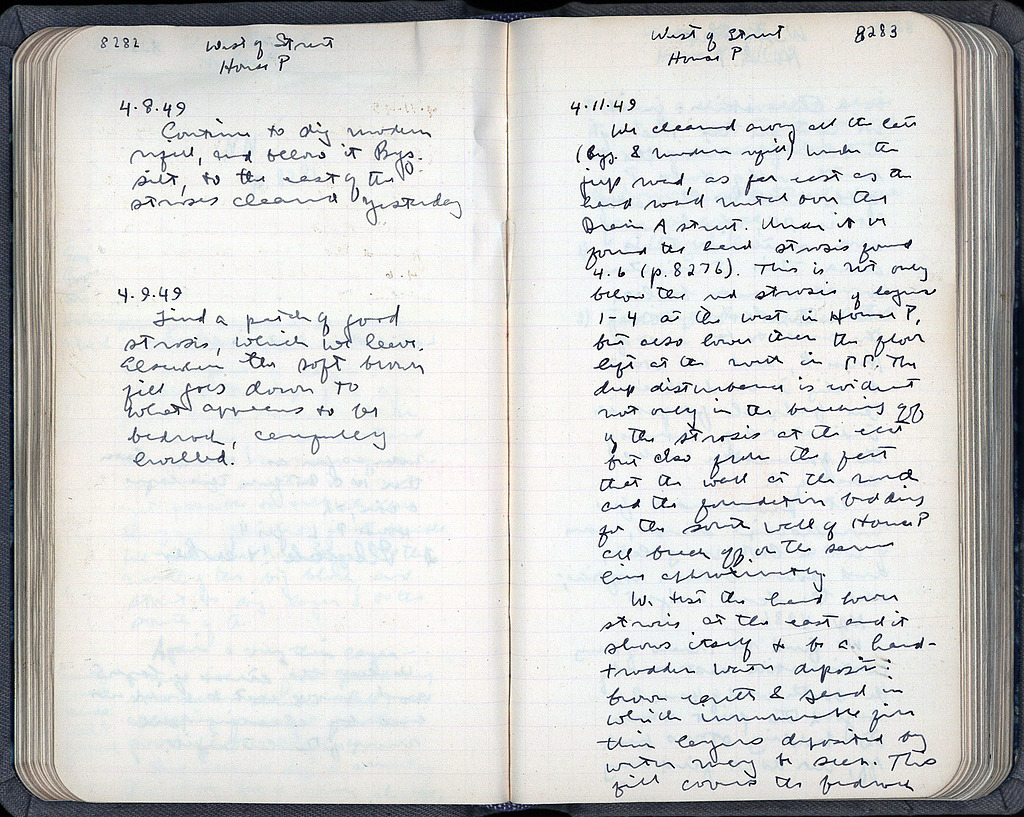 8282
West of Street
House P
4.8.49
Continue to dig modern
refill, and below it Byz.
silt, to the east of the
stroses cleared yesterday
4.9.49
Find a patch of good
strosis, which we leave.
Elsewhere the soft brown
fill goes down to
what appears to be
bedrock, completely
levelled.
West of Street
House P
8283
4.11.49
We cleared away all the late
(Byz. & modern refill) under the
jeep road, as far east as the
hard road metal over the
Drain A street. Under it we
found the hard strosis found
4.6 (p.8276). This is not only
below the red strosis of layers
1-4 at the west in House P,
but also lower than the floor
left at the north in ΓΓ. The
deep disturbance is evident
not only in the breaking off
of the strosis at the east
but also from the fact
that the wall at the north
and the foundation bedding
for the south wall of House P
all break off on the same
line approximately.
We test the hard lower
strosis at the east and it
shows itself to be a hard-
trodden water deposit:
brown earth & sand in
which innumerable fine
thin layers deposited by
water may be seen. This
fill covers the bedrock